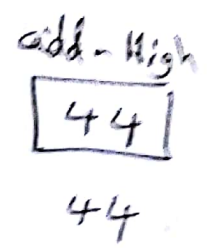 add-High
44
44